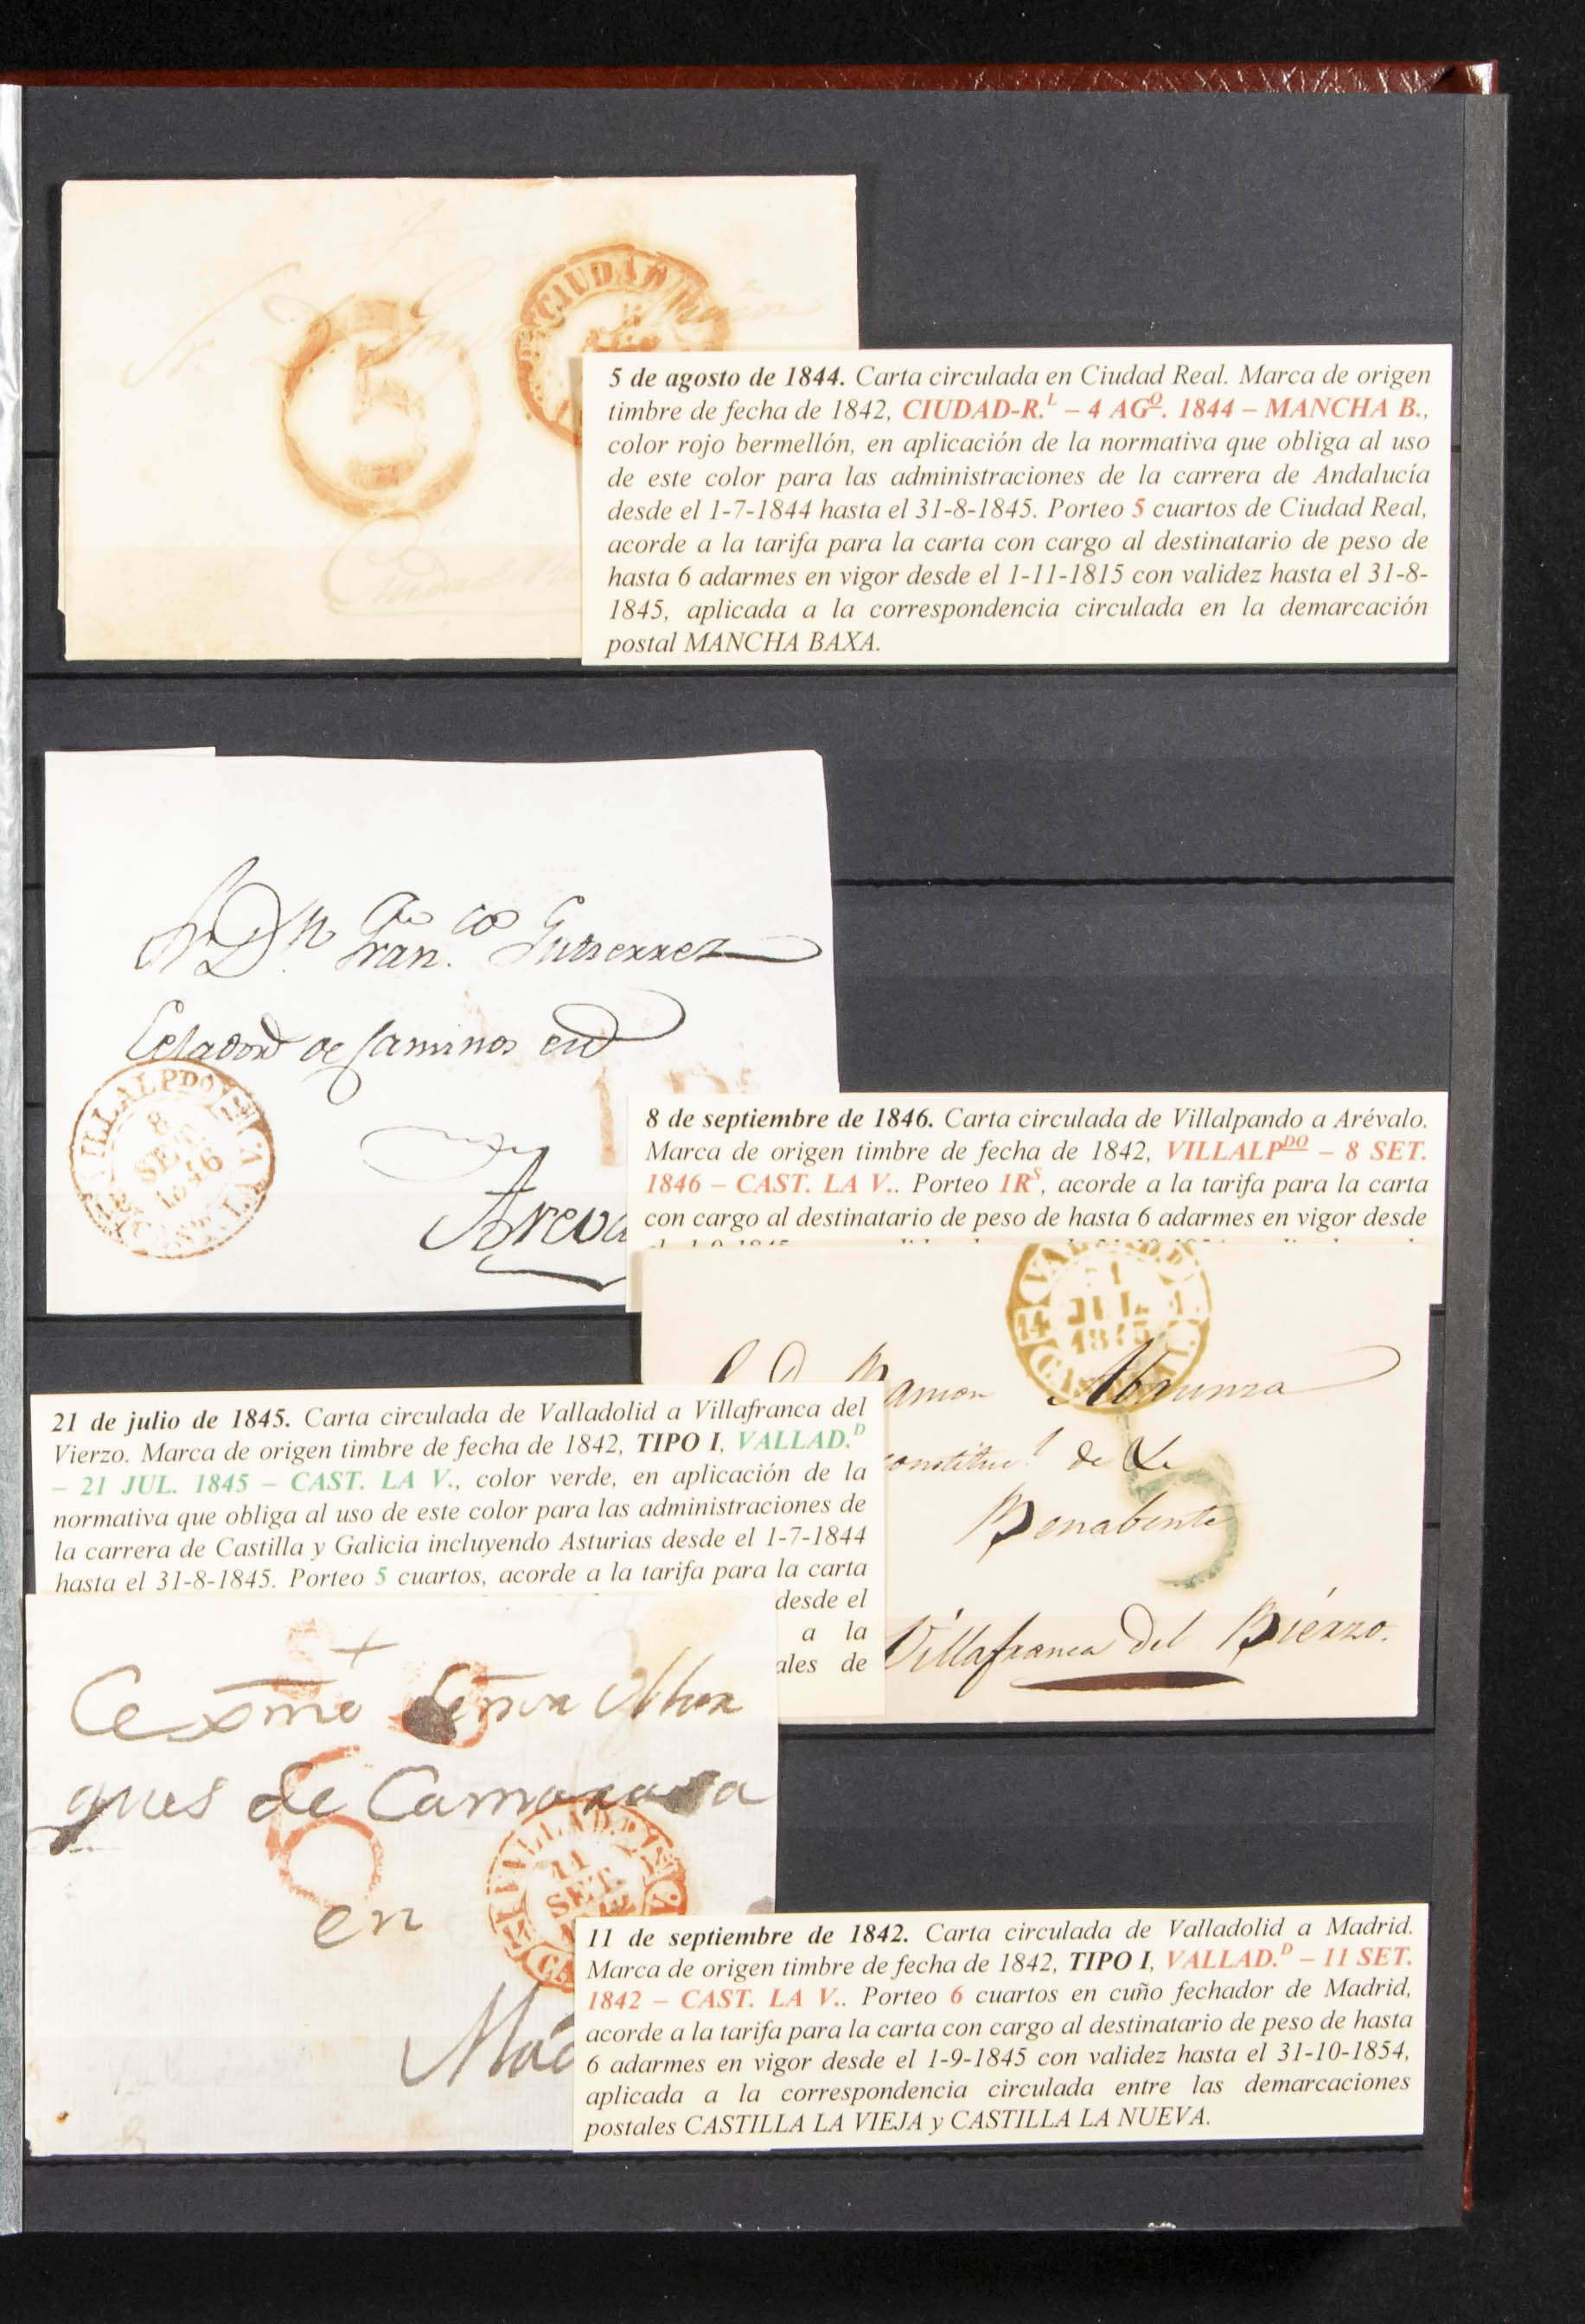 CIUDAD
5
5 de agosto de 1844. Carta circulada en Ciudad Real. Marca de origen
timbre de fecha de 1842, CIUDAD-R.L – 4 AGO. 1844 – MANCHA B.,
color rojo bermellón, en aplicación de la normativa que obliga al uso
de este color para las administraciones de la carrera de Andalucía
desde el 1-7-1844 hasta el 31-8-1845. Porteo 5 cuartos de Ciudad Real,
acorde a la tarifa para la carta con cargo al destinatario de peso de
hasta 6 adarmes en vigor desde el 1-11-1815 con validez hasta el 31-8-
1845, aplicada a la correspondencia circulada en la demarcación
postal MANCHA BAXA.
Dn Franco Gutierrez
Celador de Caminos en
VILLALPDO
8
SET.
1846
Areva
8 de septiembre de 1846. Carta circulada de Villalpando a Arévalo.
Marca de origen timbre de fecha de 1842, VILLALPDO – 8 SET.
1846 – CAST. LA V.. Porteo 1RS, acorde a la tarifa para la carta
con cargo al destinatario de peso de hasta 6 adarmes en vigor desde
VALLAD.D
21
JUL.
1845
14
amon Abrunza
constitucl de
Benabente
5
Villafranca del Bierzo.
21 de julio de 1845. Carta circulada de Valladolid a Villafranca del
Vierzo. Marca de origen timbre de fecha de 1842, TIPO I, VALLAD.D
– 21 JUL. 1845 – CAST. LA V., color verde, en aplicación de la
normativa que obliga al uso de este color para las administraciones de
la carrera de Castilla y Galicia incluyendo Asturias desde el 1-7-1844
hasta el 31-8-1845. Porteo 5 cuartos, acorde a la tarifa para la carta
desde el
a la
ales de
Cexsma Señora Mar
ques de Camarasa
6
en
VALLAD.D
11
SET.
Mad
11 de septiembre de 1842. Carta circulada de Valladolid a Madrid.
Marca de origen timbre de fecha de 1842, TIPO I, VALLAD.D – 11 SET.
1842 – CAST. LA V.. Porteo 6 cuartos en cuño fechador de Madrid,
acorde a la tarifa para la carta con cargo al destinatario de peso de hasta
6 adarmes en vigor desde el 1-9-1845 con validez hasta el 31-10-1854,
aplicada a la correspondencia circulada entre las demarcaciones
postales CASTILLA LA VIEJA y CASTILLA LA NUEVA.